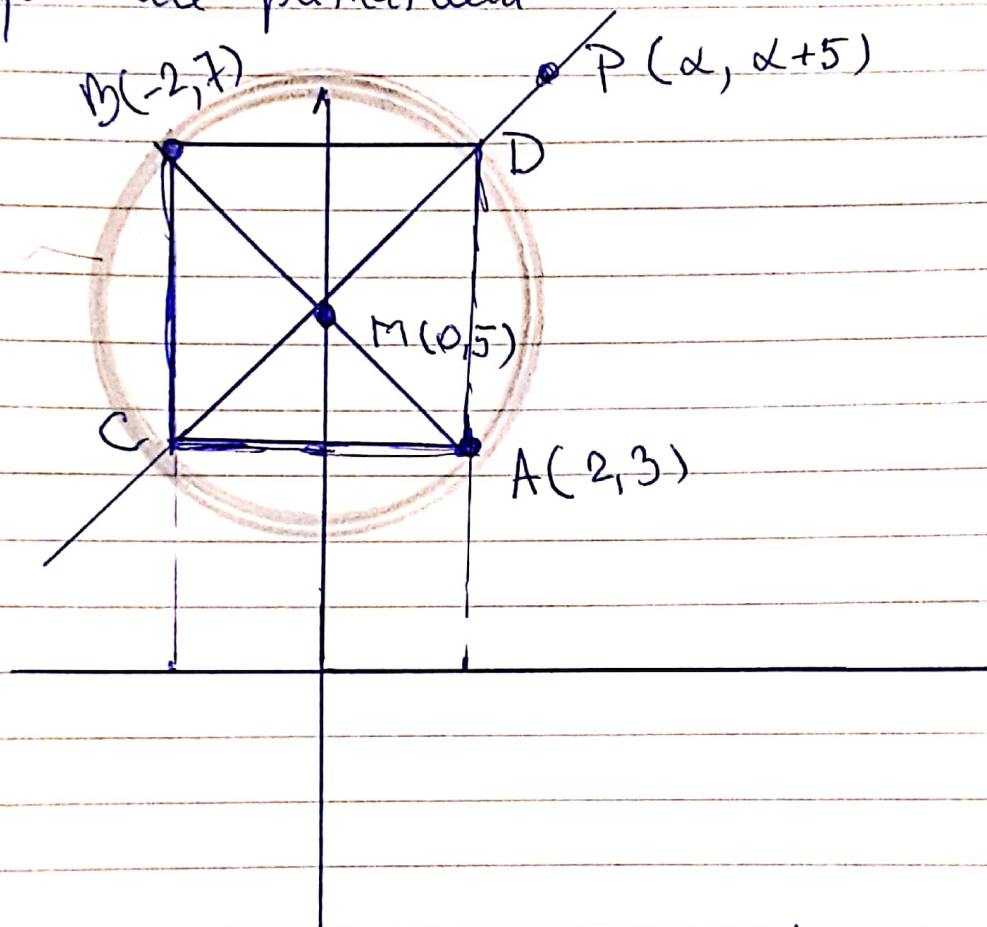 B(-2,7)
P (α, α+5)
D
M(0,5)
C
A(2,3)